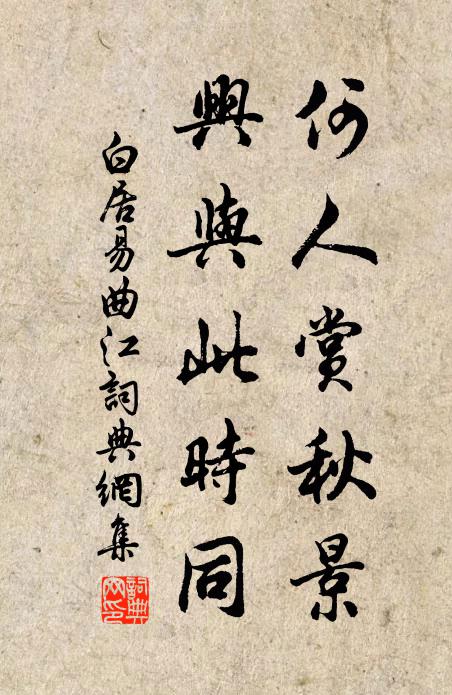 何人賞秋景
興與此時同
白居易曲江詞典網集
詞典
網印